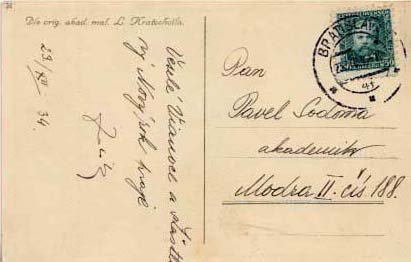 Dľe orig. akad. mal. L. Kratochvíla.
23/XII. 34.
Veselé Vianoce a šťastli
vý Nový rok praje
BRATISLAVA
50
Pan
Pavel Sodoma
akademik
Modra II. čís 188.